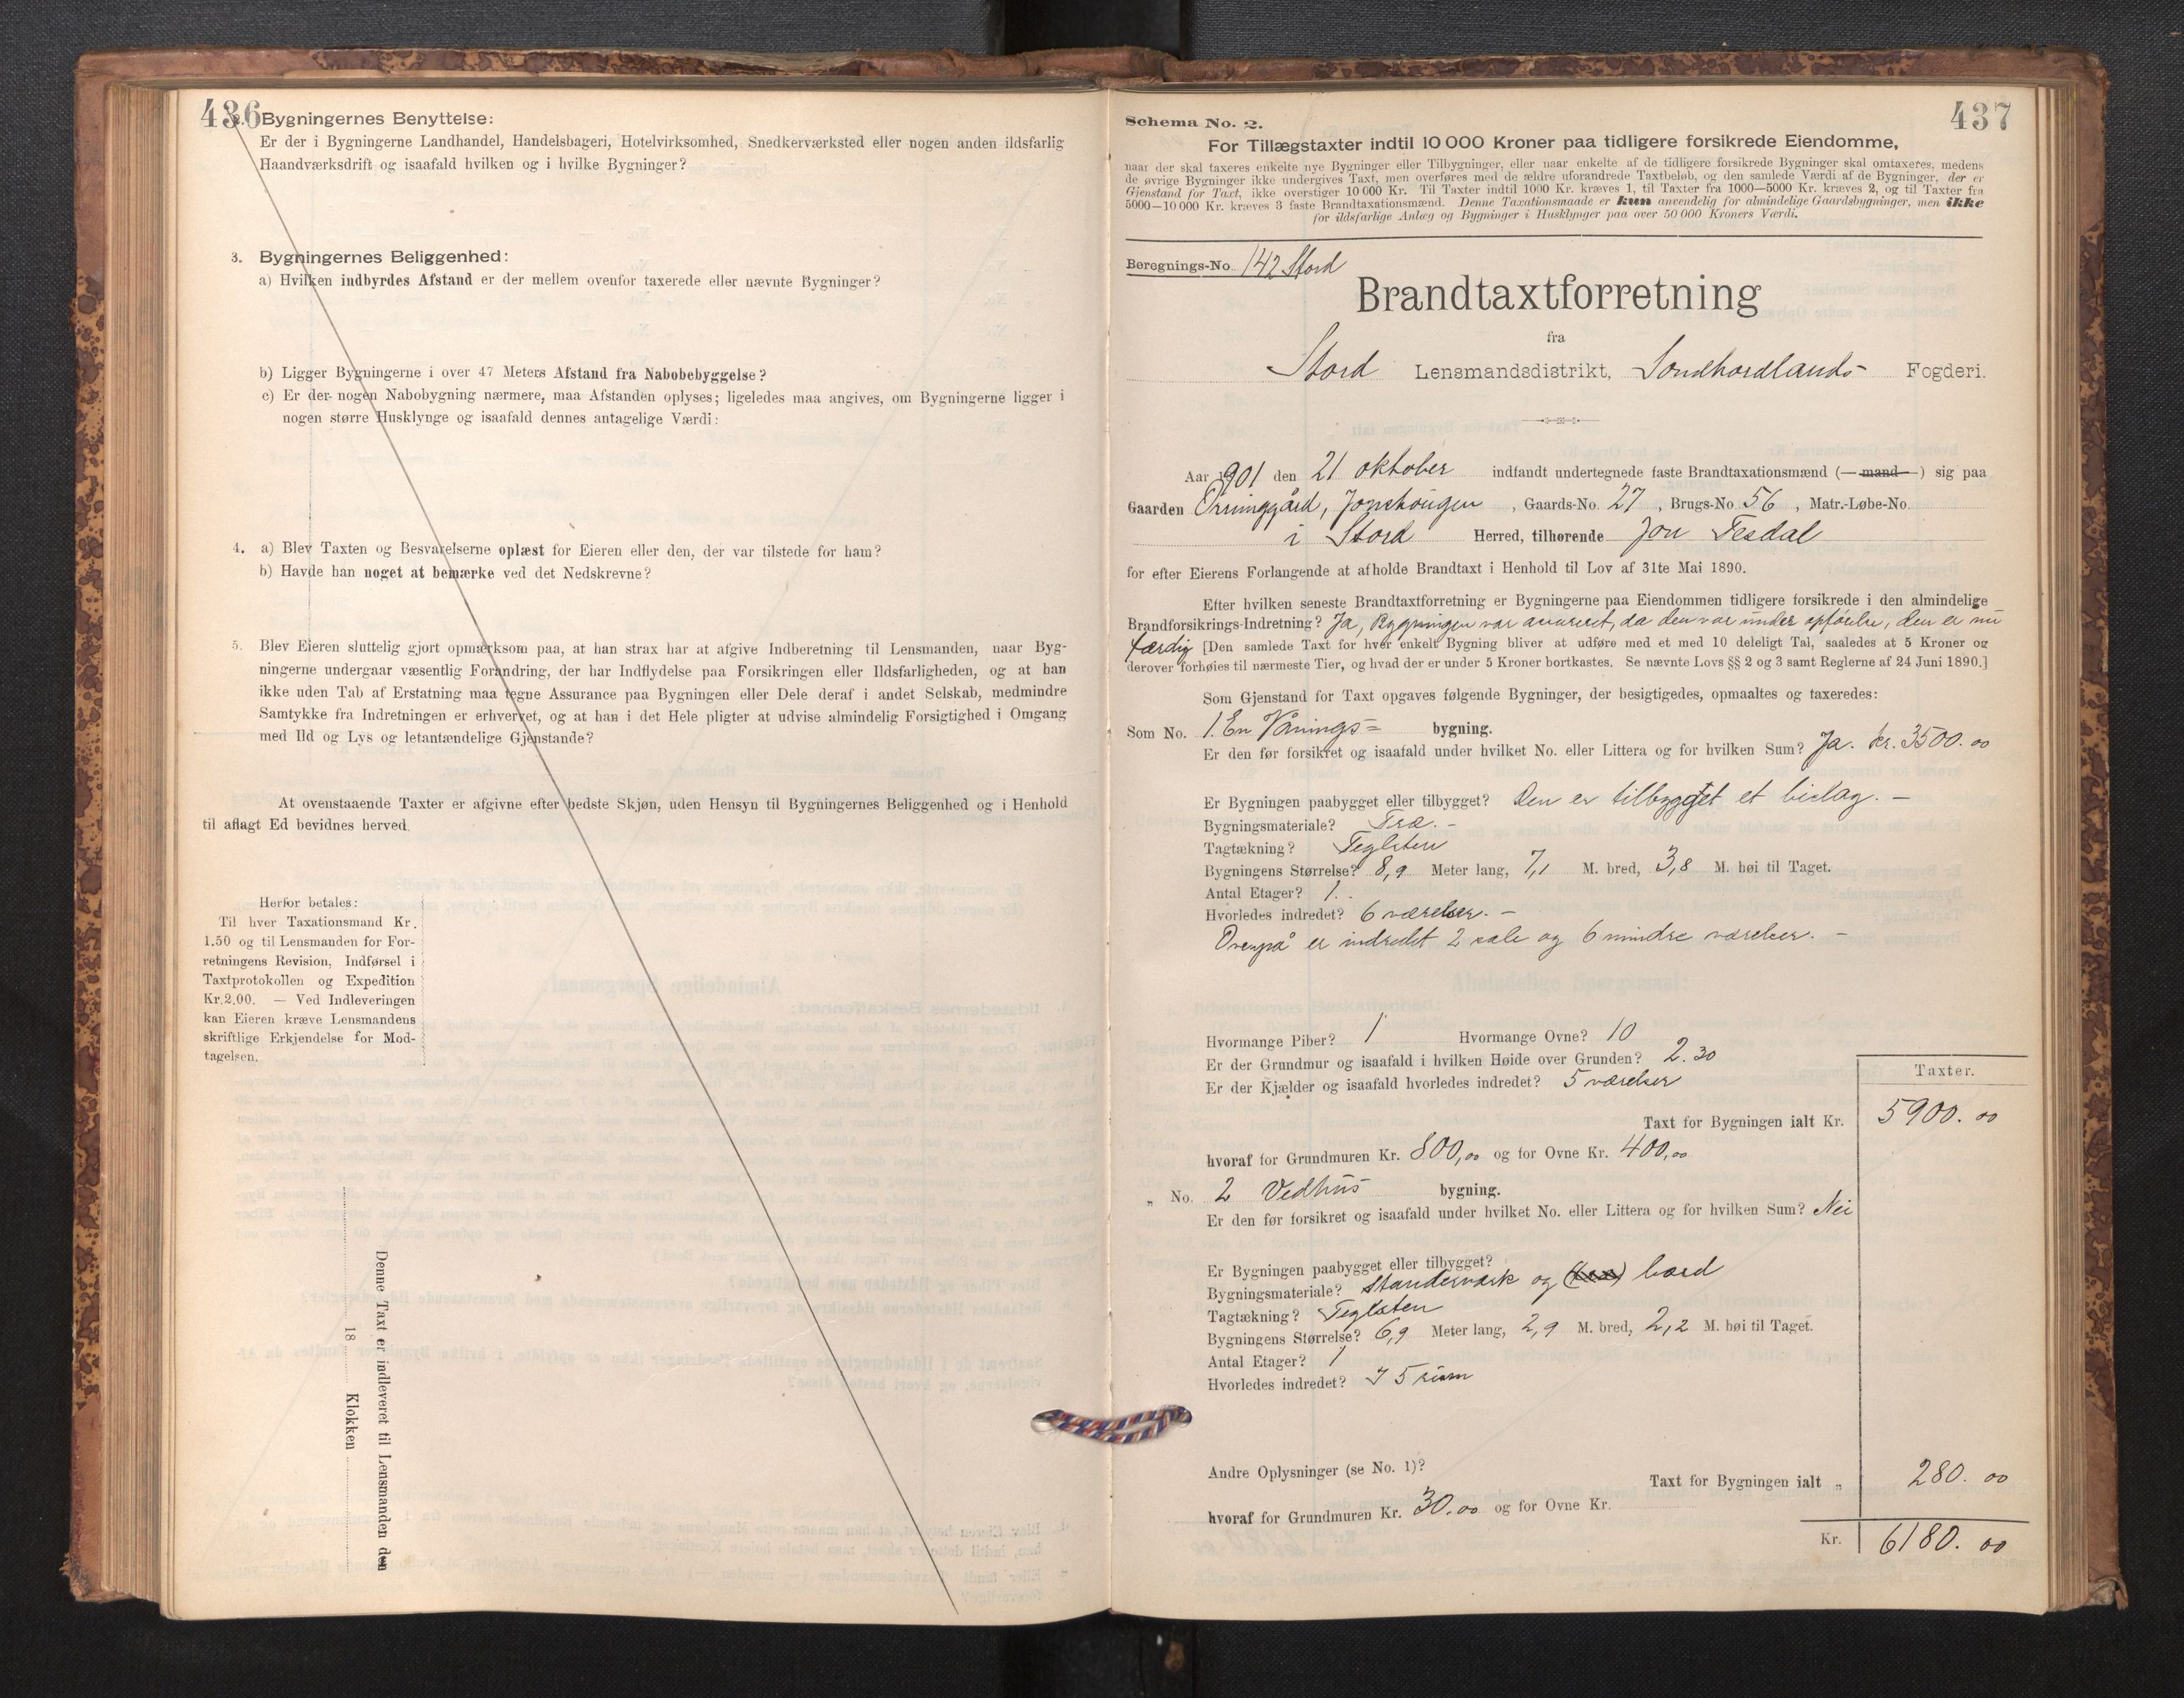 436
2. Bygningernes Benyttelse:
Er der i Bygningerne Landhandel, Handelsbageri, Hotelvirksomhed, Snedkerværksted eller nogen anden ildsfarlig
Haandværksdrift og isaafald hvilken og i hvilke Bygninger?
3. Bygningernes Beliggenhed:
a) Hvilken indbyrdes Afstand er der mellem ovenfor taxerede eller nævnte Bygninger?
b) Ligger Bygningerne i over 47 Meters Afstand fra Nabobebyggelse?
c) Er der nogen Nabobygning nærmere, maa Afstanden oplyses; ligeledes maa angives, om Bygningerne ligger i
nogen større Husklynge og isaafald dennes antagelige Værdi:
4. a) Blev Taxten og Besvarelserne oplæst for Eieren eller den, der var tilstede for ham?
b) Havde han noget at bemærke ved det Nedskrevne?
5. Blev Eieren sluttelig gjort opmærksom paa, at han strax har at afgive Indberetning til Lensmanden, naar Byg-
ningerne undergaar væsentlig Forandring, der har Indflydelse paa Forsikringen eller Ildsfarligheden, og at han
ikke uden Tab af Erstatning maa tegne Assurance paa Bygningen eller Dele deraf i andet Selskab, medmindre
Samtykke fra Indretningen er erhvervet, og at han i det Hele pligter at udvise almindelig Forsigtighed i Omgang
med Ild og Lys og letantændelige Gjenstande?
At ovenstaaende Taxter er afgivne efter bedste Skjøn, uden Hensyn til Bygningernes Beliggenhed og i Henhold
til aflagt Ed bevidnes herved.
Herfor betales:
Til hver Taxationsmand Kr.
1.50 og til Lensmanden for For-
retningens Revision, Indførsel i
Taxtprotokollen og Expedition
Kr.2.00. — Ved Indleveringen
kan Eieren kræve Lensmandens
skriftlige Erkjendelse for Mod-
tagelsen.
Denne Taxt er indleveret til Lensmanden den
18 Klokken
437
Schema No. 2.
For Tillægstaxter indtil 10 000 Kroner paa tidligere forsikrede Eiendomme,
naar der skal taxeres enkelte nye Bygninger eller Tilbygninger, eller naar enkelte af de tidligere forsikrede Bygninger skal omtaxeres, medens
de øvrige Bygninger ikke undergives Taxt, men overføres med de ældre uforandrede Taxtbeløb, og den samlede Værdi af de Bygninger, der er
Gjenstand for Taxt, ikke overstiger 10 000 Kr. Til Taxter indtil 1000 Kr. kræves 1, til Taxter fra 1000—5000 Kr. kræves 2, og til Taxter fra
5000—10 000 Kr. kræves 3 faste Brandtaxationsmænd. Denne Taxationsmaade er kun anvendelig for almindelige Gaardsbygninger, men ikke
for ildsfarlige Anlæg og Bygninger i Husklynger paa over 50 000 Kroners Værdi.
Beregnings-No. 142 Stord
Brandtaxtforretning
fra
Stord Lensmandsdistrikt, Søndhordlands Fogderi.
Aar 1901 den 21 oktober indfandt undertegnede faste Brandtaxationsmænd (— mand —) sig paa
Gaarden Orninggård, Jonshougen, Gaards-No. 27, Brugs-No 56, Matr.-Løbe-No.
i Stord Herred, tilhørende Jon Tesdal
for efter Eierens Forlangende at afholde Brandtaxt i Henhold til Lov af 31te Mai 1890.
Efter hvilken seneste Brandtaxtforretning er Bygningerne paa Eiendommen tidligere forsikrede i den almindelige
Brandforsikrings-Indretning? Ja, Bygningen var assureret, da den var under opførelse, den er nu
færdig [Den samlede Taxt for hver enkelt Bygning bliver at udføre med et med 10 deleligt Tal, saaledes at 5 Kroner og
derover forhøies til nærmeste Tier, og hvad der er under 5 Kroner bortkastes. Se nævnte Lovs §§ 2 og 3 samt Reglerne af 24 Juni 1890.]
Som Gjenstand for Taxt opgaves følgende Bygninger, der besigtigedes, opmaaltes og taxeredes:
Som No. 1. En Vånings= bygning.
Er den før forsikret og isaafald under hvilket No. eller Littera og for hvilken Sum? Ja. kr. 3500.00
Er Bygningen paabygget eller tilbygget? Den er tilbygget et bislag. —
Bygningsmateriale? Træ. —
Tagtækning? Teglsten
Bygningens Størrelse? 8,9 Meter lang, 7,1 M. bred, 3,8 M. høi til Taget.
Antal Etager? 1.
Hvorledes indredet? 6 værelser. —
Ovenpå er indredet 2 sale og 6 mindre værelser. —
Hvormange Piber? 1 Hvormange Ovne? 10
Er der Grundmur og isaafald i hvilken Høide over Grunden? 2.30
Er der Kjælder og isaafald hvorledes indredet? 5 værelser
Taxter.
Taxt for Bygningen ialt Kr. 5900.00
hvoraf for Grundmuren Kr. 800,00 og for Ovne Kr. 400,00
„ No. 2 Vedhus bygning.
Er den før forsikret og isaafald under hvilket No. eller Littera og for hvilken Sum? Nei
Er Bygningen paabygget eller tilbygget?
Bygningsmateriale? Standerværk og bord
Tagtækning? Teglsten
Bygningens Størrelse? 6,9 Meter lang, 2,9 M. bred, 2,2 M. høi til Taget.
Antal Etager? 1
Hvorledes indredet? I 5 rum
Andre Oplysninger (se No. 1)?
Taxt for Bygningen ialt „ 280.00
hvoraf for Grundmuren Kr. 30.00 og for Ovne Kr.
Kr. 6180.00